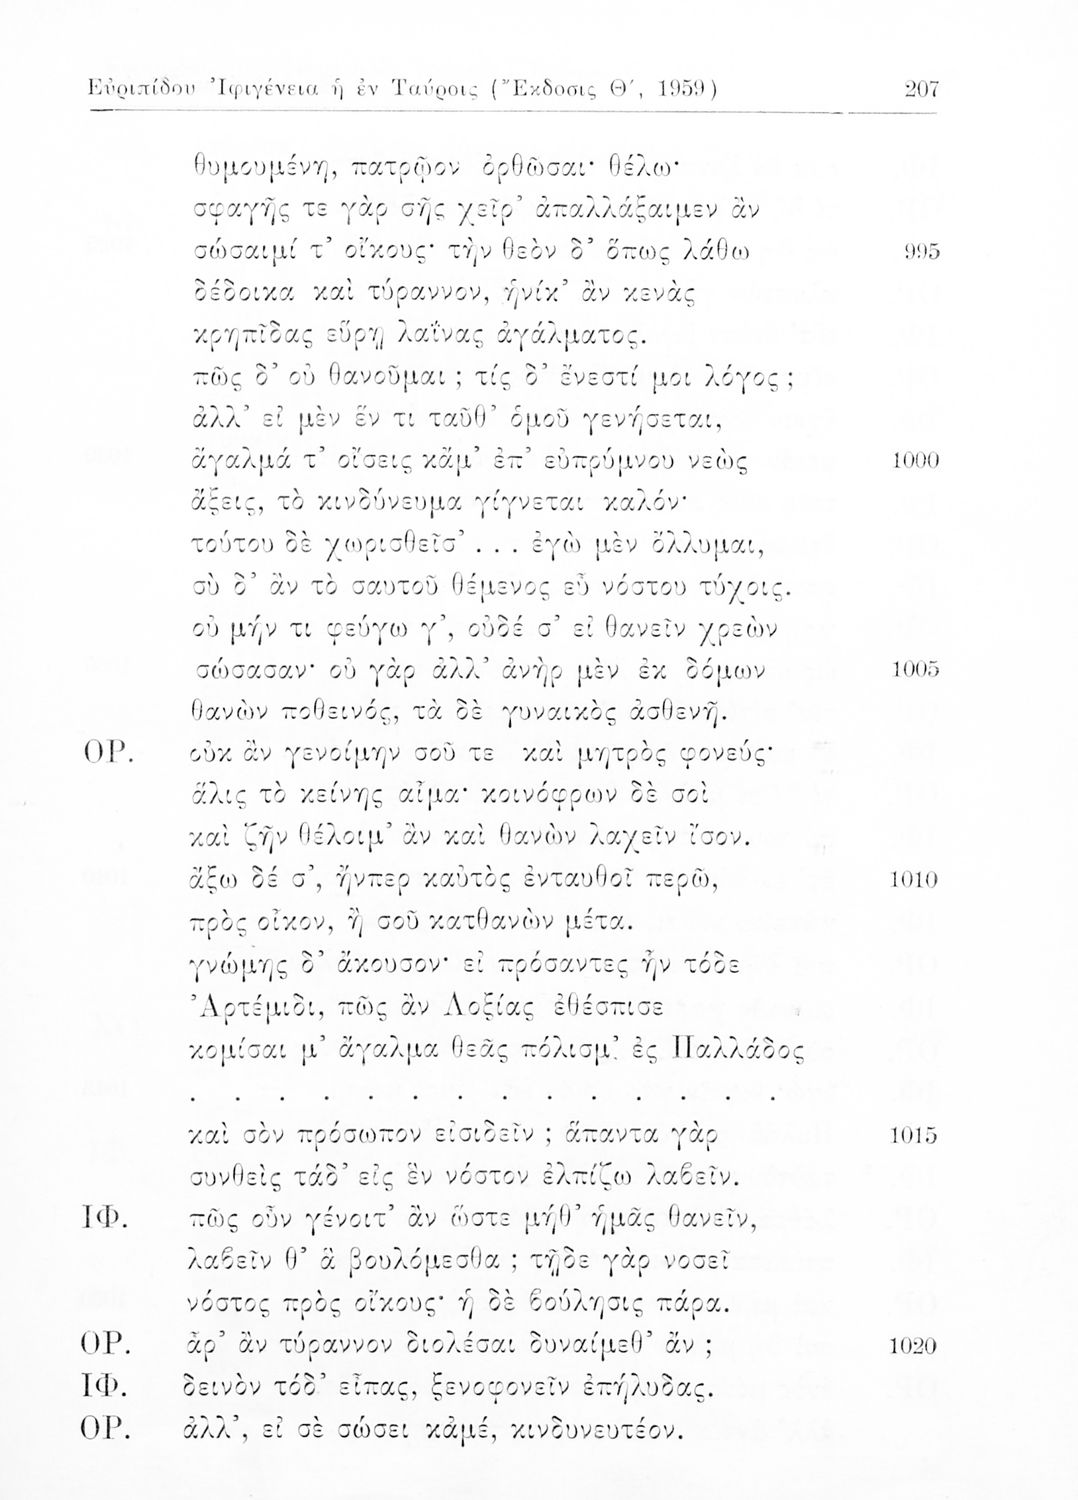 Εὐριπίδου Ἰφιγένεια ἡ ἐν Ταύροις (Ἔκδοσις Θ΄, 1959) 207
θυμουμένῃ, πατρῷον ὀρθῶσαι· θέλω·
σφαγῆς τε γὰρ σῆς χεῖρ’ ἀπαλλάξαιμεν ἂν
σώσαιμί τ’ οἴκους· τὴν θεὸν δ’ ὅπως λάθω 995
δέδοικα καὶ τύραννον, ἡνίκ’ ἂν κενὰς
κρηπῖδας εὕρῃ λαΐνας ἀγάλματος.
πῶς δ’ οὐ θανοῦμαι ; τίς δ’ ἔνεστί μοι λόγος ;
ἀλλ’ εἰ μὲν ἕν τι ταῦθ’ ὁμοῦ γενήσεται,
ἄγαλμά τ’ οἴσεις κἄμ’ ἐπ’ εὐπρύμνου νεὼς 1000
ἄξεις, τὸ κινδύνευμα γίγνεται καλόν·
τούτου δὲ χωρισθεῖσ’ . . . ἐγὼ μὲν ὄλλυμαι,
σὺ δ’ ἂν τὸ σαυτοῦ θέμενος εὖ νόστου τύχοις.
οὐ μήν τι φεύγω γ’, οὐδέ σ’ εἰ θανεῖν χρεὼν
σώσασαν· οὐ γὰρ ἀλλ’ ἀνὴρ μὲν ἐκ δόμων 1005
θανὼν ποθεινός, τὰ δὲ γυναικὸς ἀσθενῆ.
ΟΡ. οὐκ ἂν γενοίμην σοῦ τε καὶ μητρὸς φονεύς·
ἅλις τὸ κείνης αἷμα· κοινόφρων δὲ σοὶ
καὶ ζῆν θέλοιμ’ ἂν καὶ θανὼν λαχεῖν ἴσον.
ἄξω δέ σ’, ἤνπερ καὐτὸς ἐνταυθοῖ περῶ, 1010
πρὸς οἶκον, ἢ σοῦ κατθανὼν μέτα.
γνώμης δ’ ἄκουσον· εἰ πρόσαντες ἦν τόδε
Ἀρτέμιδι, πῶς ἂν Λοξίας ἐθέσπισε
κομίσαι μ’ ἄγαλμα θεᾶς πόλισμ’ ἐς Παλλάδος
. . . . . . . . . . . . . .
καὶ σὸν πρόσωπον εἰσιδεῖν ; ἅπαντα γὰρ 1015
συνθεὶς τάδ’ εἰς ἓν νόστον ἐλπίζω λαϐεῖν.
ΙΦ. πῶς οὖν γένοιτ’ ἂν ὥστε μήθ’ ἡμᾶς θανεῖν,
λαϐεῖν θ’ ἃ βουλόμεσθα ; τῇδε γὰρ νοσεῖ
νόστος πρὸς οἴκους· ἡ δὲ ϐούλησις πάρα.
ΟΡ. ἆρ’ ἂν τύραννον διολέσαι δυναίμεθ’ ἄν ; 1020
ΙΦ. δεινὸν τόδ’ εἶπας, ξενοφονεῖν ἐπήλυδας.
ΟΡ. ἀλλ’, εἰ σὲ σώσει κἀμέ, κινδυνευτέον.